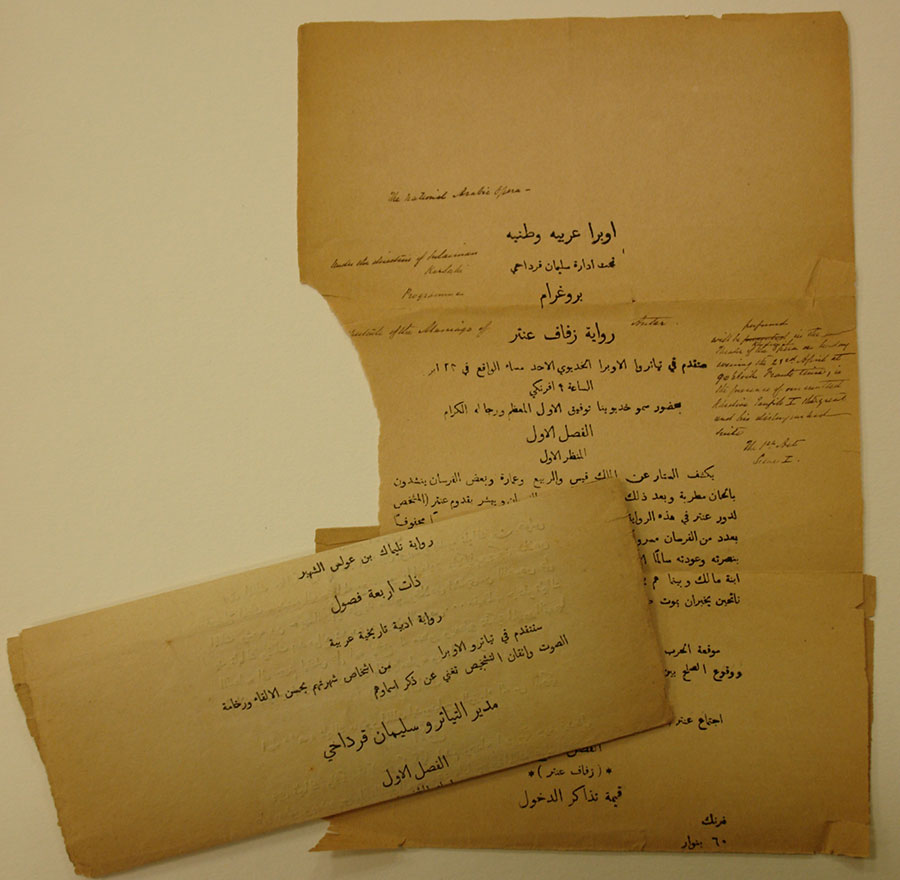 The National Arabic Opera -
اوبرا عربيه وطنيه
Under the direction of Sulaiman
Kardahi
تحت ادارة سليمان قرداحي
Programme
بروغرام
of the Marriage of
Antar.
رواية زفاف عنتر
performed
will be in the
Theatre of the Opera on Sunday
evening the 23rd April at
9 o'clock Franks time, in
the presence of our
Khedive Taufik I the great
and his distinguished
suite
The 1st Act
Scene I.
ستقدم في تياتروا الاوبرا الخديوي الاحد مساء الواقع في
الساعة ٩ افرنكي
بحضور سمو خديوينا توفيق الاول المعظم ورجاله الكرام
الفصل الاول
المنظر الاول
يكشف الستار عن الملك قيس والربيع وعمارة وبعض الفرسان ينشدون
بالحان مطربة وبعد ذلك ويبشر بقدوم عنتر (المشخص
لدور عنتر في هذه الرواية محفوفاً
بعدد من الفرسان
بنصرته وعودته سالماً
ابنة مالك وبينما هم
نائحين يخبران بموت
موقعة الحرب
ووقوع الصلح بين
اجتماع عنتر
الفصل
*(زفاف عنتر)*
قيمة تذاكر الدخول
فرنك
٦٠ بنوار
رواية تليماك بن عولس الشهير
ذات اربعة فصول
رواية ادبية تاريخية عربية
ستتقدم في تياترو الاوبرا
من اشخاص شهرتهم بحسن الالقاء ورخامة
الصوت واتقان التشخيص تغني عن ذكر اسماوهم
مدير التياترو سليمان قرداحي
الفصل الاول